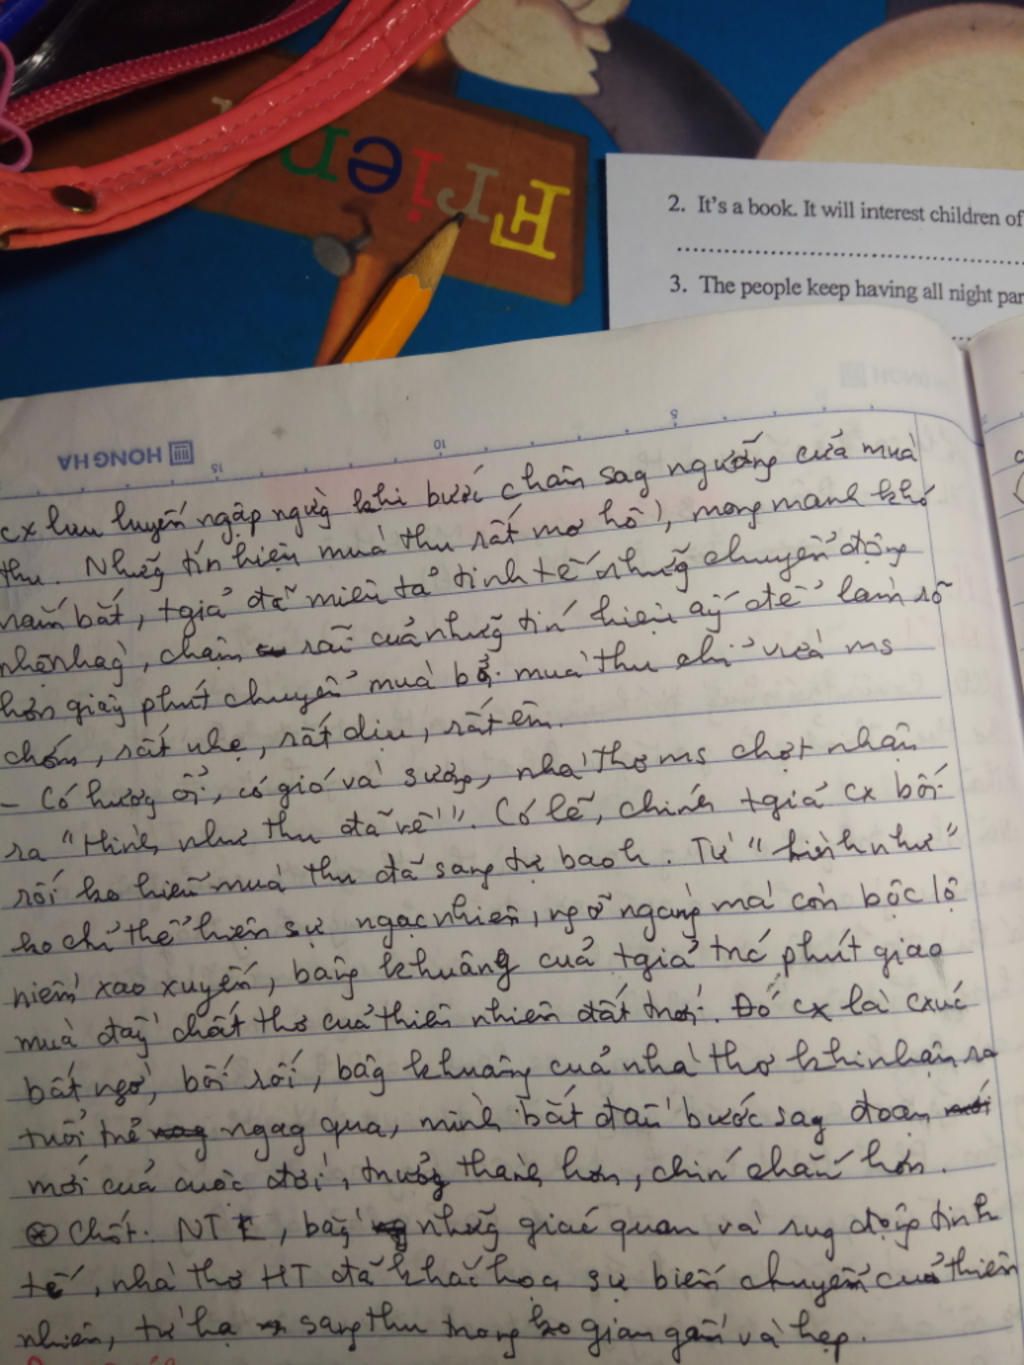 Frien
2. It's a book. It will interest children of
3. The people keep having all night par
HONG HA
15
10
5
cx lưu luyến ngập ngừg khi bước chân sag ngưỡng cửa mùa
thu. Nhữg tín hiệu mùa thu rất mơ hồ, mong manh khó
nắm bắt, tgiả đã miêu tả tinh tế nhữg chuyển động
nhẹ nhàg, chậm rãi của nhữg tín hiệu ấy để làm rõ
hơn giây phút chuyển mùa bởi. mùa thu chỉ vừa ms
chớm, rất nhẹ, rất dịu, rất êm.
- Có hương ổi, có gió và sương, nhà thơ ms chợt nhận
ra "Hình như thu đã về". Có lẽ, chính tgiả cx bối
rối ko hiểu mùa thu đã sang tự bao h. Từ "hình như"
ko chỉ thể hiện sự ngạc nhiên, ngỡ ngàng mà còn bộc lộ
niềm xao xuyến, bâng khuâng của tgiả trc phút giao
mùa đầy chất thơ của thiên nhiên đất trời. Đó cx là cxúc
bất ngờ, bối rối, bâg khuâng của nhà thơ khi nhận ra
tuổi trẻ ngag qua, mình bắt đầu bước sag đoạn
mới của cuộc đời, trưởg thành hơn, chín chắn hơn.
⊛ Chốt. NT , bằg nhữg giác quan và rug động tinh
tế, nhà thơ HT đã khắc họa sự biến chuyển của thiên
nhiên, từ hạ sang thu trong ko gian gần và hẹp.